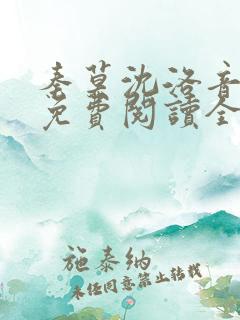 秦墓沈洛音
免費閱讀全
施泰纳
未经同意禁止转载